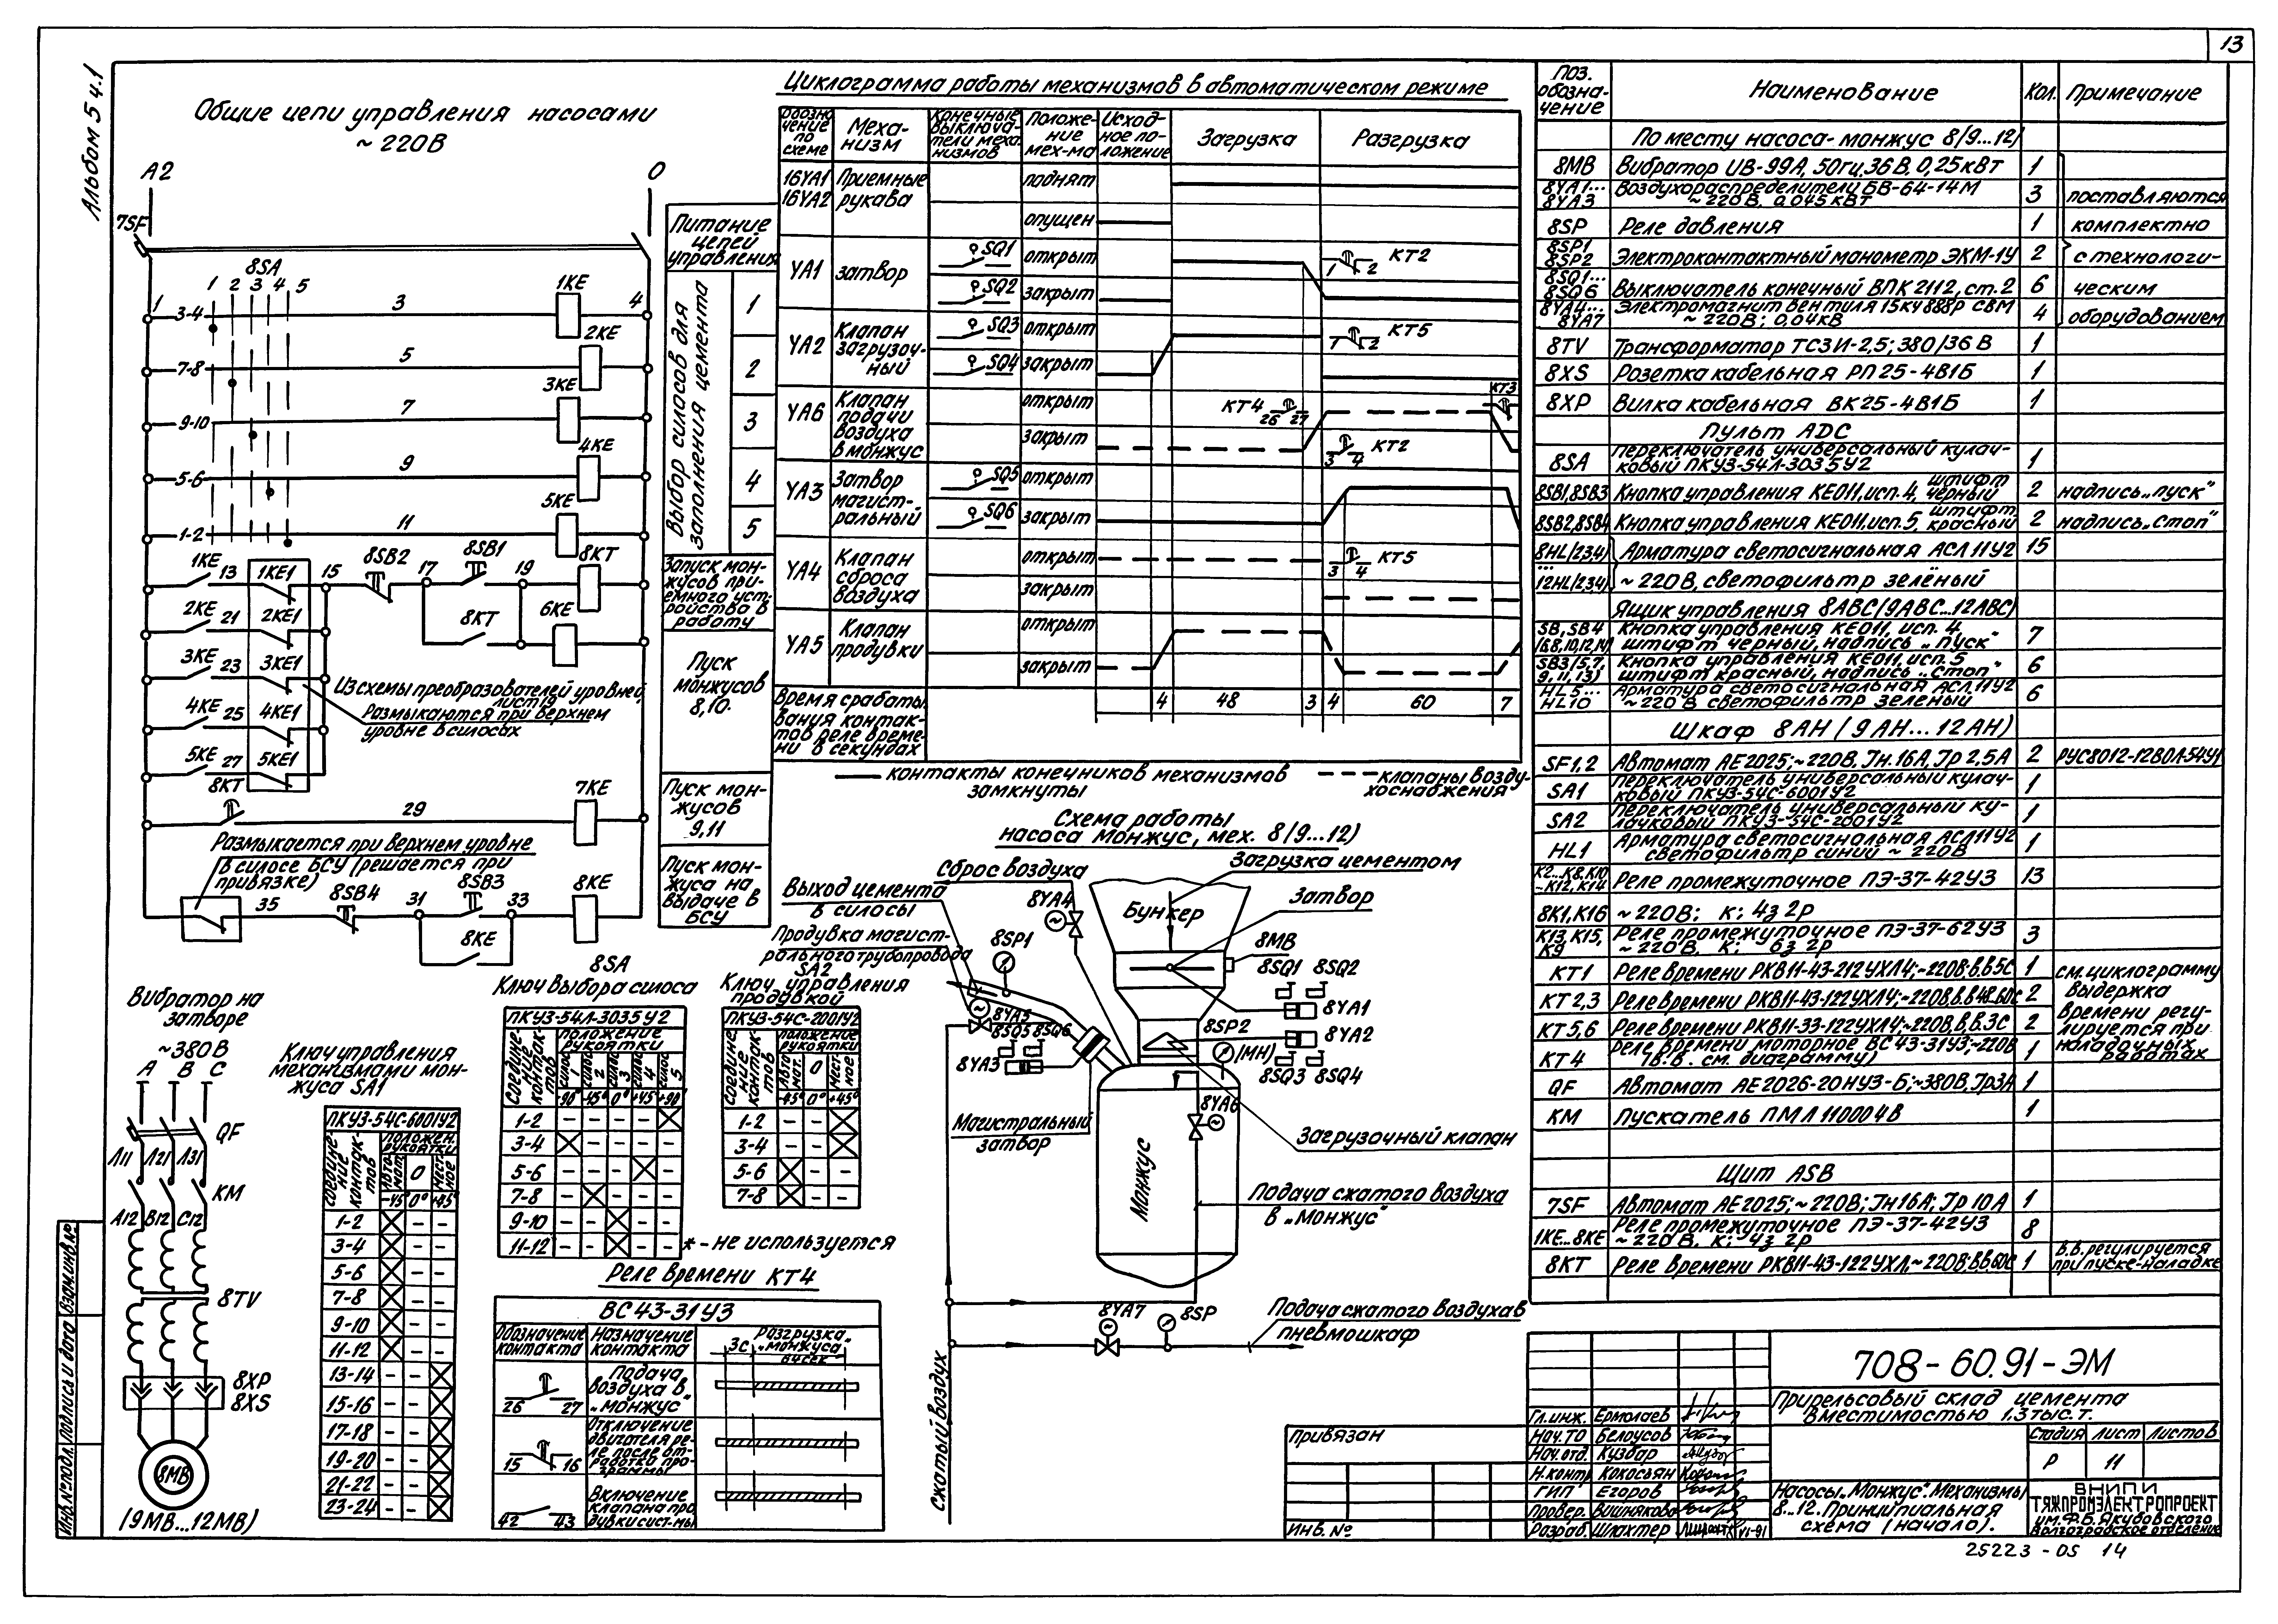 13
Альбом 5 ч.1
Общие цепи управления насосами
~ 220В
А2
0
7SF
8SA
1 2 3 4 5
1
3-4
3
1КЕ
4
7-8
5
2КЕ
9-10
7
3КЕ
5-6
9
4КЕ
1-2
11
5КЕ
1КЕ 13 1КЕ1 15 8SB2 17 8SB1 19 8КТ
2КЕ 21 2КЕ1
8КТ
6КЕ
3КЕ 23 3КЕ1
4КЕ 25 4КЕ1
5КЕ 27 5КЕ1
Из схемы преобразователей уровней,
лист 19
Размыкаются при верхнем
уровне в силосах
8КТ
29
7КЕ
Размыкается при верхнем уровне
в силосе БСУ (решается при
привязке)
35
8SB4
31
8SB3
33
8КЕ
8КЕ
Питание
цепей
управления
Выбор силосов для
заполнения цемента
1
2
3
4
5
Запуск мон-
жусов при-
емного уст-
ройства в
работу
Пуск
монжусов
8,10.
Пуск мон-
жусов
9,11
Пуск мон-
жуса на
выдаче в
БСУ
Циклограмма работы механизмов в автоматическом режиме
Обозна
чение
по
схеме
Меха-
низм
Конечные
выключа-
тели меха-
низмов
Положе-
ние
мех-ма
Исход-
ное по-
ложение
Загрузка
Разгрузка
16YA1
16YA2
Приемные
рукава
поднят
опущен
YA1
затвор
SQ1
открыт
1 2
КТ2
SQ2
закрыт
YA2
Клапан
загрузоч-
ный
SQ3
открыт
1 2
КТ5
SQ4
закрыт
YA6
Клапан
подачи
воздуха
в монжус
открыт
КТ4
26 27
КТ3
закрыт
3 4
КТ2
YA3
Затвор
магист-
ральный
SQ5
открыт
SQ6
закрыт
YA4
Клапан
сброса
воздуха
открыт
3 4
КТ5
закрыт
YA5
Клапан
продувки
открыт
закрыт
Время срабаты
вания контак-
тов реле време-
ни в секундах
4 48 3 4 60 7
контакты конечников механизмов
замкнуты
клапаны возду-
хоснабжения
Схема работы
насоса Монжус, мех. 8/9...12)
Сброс воздуха
Загрузка цементом
Выход цемента
в силосы
8YA4
Бункер
Затвор
Продувка магист-
рального трубопровода
8SP1
8МВ
8SQ1 8SQ2
8YA1
8YA5
8SQ5 8SQ6
8SP2
8YA2
8YA3
(МН)
8SQ3 8SQ4
Магистральный
затвор
8YA6
Загрузочный клапан
Монжус
Подача сжатого воздуха
в „Монжус"
8YA7
8SP
Подача сжатого воздуха в
пневмошкаф
Сжатый воздух
Вибратор на
затворе
~380В
А В С
QF
Л11 Л21 Л31
КМ
А12 В12 С12
8TV
8ХР
8XS
8МВ
(9МВ...12МВ)
Ключ управления
механизмами мон-
жуса SA1
ПКУ3-54С-6001У2
Соедине-
ние
контак-
тов
Положен.
рукоятки
Авто
мат.
0
Мест-
ное
-45° 0° +45°
1-2 X - -
3-4 X - -
5-6 X - -
7-8 X - -
9-10 X - -
11-12 X - -
13-14 - - X
15-16 - - X
17-18 - - X
19-20 - - X
21-22 - - X
23-24 - - X
8SA
Ключ выбора силоса
ПКУ3-54Л-3035У2
Соедине-
ние
контак-
тов
положение
рукоятки
силос 1
силос 2
силос 3
силос 4
силос 5
-90° -45° 0° +45° +90°
1-2 - - - - X
3-4 X - - - -
5-6 - - - X -
7-8 - X - - -
9-10 - - X - -
11-12 - - X - -
* - не используется
SA2
Ключ управления
продувкой
ПКУ3-54С-2001У2
Соедине-
ние
контак-
тов
положение
рукоятки
Авто
мат.
0
Мест-
ное
-45° 0° +45°
1-2 - - X
3-4 - - X
5-6 X - -
7-8 X - -
Реле времени КТ4
ВС43-31У3
Обозначение
контакта
Назначение
контакта
3с
Разгрузка
„монжуса"
84сек
26 27
Подача
воздуха в
„монжус"
15 16
Отключение
двигателя ре-
ле после от-
работки про-
граммы
42 43
Включение
клапана про
дувки сист-мы
Поз.
обозна-
чение
Наименование
Кол.
Примечание
По месту насоса-монжус 8/9...12)
8МВ Вибратор ИВ-99А, 50гц, 36В, 0,25кВт 1
8YA1...
8YA3
Воздухораспределители БВ-64-14М
~ 220В, 0,045кВт
3
поставляются
8SP Реле давления 1 комплектно
8SP1
8SP2
Электроконтактный манометр ЭКМ-1У 2 с технологи-
8SQ1...
8SQ6
Выключатель конечный ВПК 2112, ст.2 6 ческим
8YA4...
8YA7
Электромагнит вентиля 15кч 888р СВМ
~ 220В; 0,04кВ
4 оборудованием
8TV Трансформатор ТСЗИ-2,5; 380/36 В 1
8XS Розетка кабельная РП25-4В1Б 1
8ХР Вилка кабельная ВК25-4В1Б 1
Пульт ADC
8SA
Переключатель универсальный кулач-
ковый ПКУ3-54Л-3035У2
1
8SB1,8SB3 Кнопка управления КЕ011, исп. 4, штифт черный 2 надпись „пуск"
8SB2,8SB4 Кнопка управления КЕ011, исп. 5, штифт красный 2 надпись „Стоп"
8HL/2,3,4)
...
12HL/2,3,4)
Арматура светосигнальная АСЛ11У2 15
~ 220В, светофильтр зелёный
Ящик управления 8АВС(9АВС...12АВС)
SB, SB4
/6,8,10,12,14)
Кнопка управления КЕ011, исп. 4,
штифт черный, надпись „пуск"
7
SB3/5,7,
9,11,13)
Кнопка управления КЕ011, исп. 5
штифт красный, надпись „Стоп"
6
HL5...
HL10
Арматура светосигнальная АСЛ11У2
~ 220 В светофильтр зеленый
6
Шкаф 8АН (9АН...12АН)
SF1,2 Автомат АЕ2025; ~220В, Jн.16А, Jр 2,5А 2 РУС8012-12В0Л-54У1
SA1
Переключатель универсальный кулач-
ковый ПКУ3-54С-6001У2
1
SA2
Переключатель универсальный ку-
лачковый ПКУ3-54С-2001У2
1
HL1
Арматура светосигнальная АСЛ11У2
светофильтр синий ~ 220В
1
К2...К8,К10
-К12,К14
Реле промежуточное ПЭ-37-42У3 13
8К1,К16 ~ 220В; к; 4з 2р
К13,К15,
К9
Реле промежуточное ПЭ-37-62У3
~ 220В, к; 6з 2р
3
КТ1 Реле времени РКВ11-43-212УХЛ4; ~220В; в.в 5С 1 см. циклограмму
КТ2,3 Реле времени РКВ11-43-122УХЛ4; ~220В, в.в 48-60с 2 выдержка
КТ5,6 Реле времени РКВ11-33-122УХЛ4; ~220В, в.в. 3С 2 времени регу-
лируется при
КТ4
Реле времени моторное ВС43-31У3; ~220В
(в.в. см. диаграмму)
1
наладочных
работах
QF Автомат АЕ2026-20НУ3-Б; ~380В, Jр3А 1
КМ Пускатель ПМЛ 110004В 1
Щит ASB
7SF Автомат АЕ2025; ~220В; Jн16А; Jр 10А 1
1КЕ...8КЕ
Реле промежуточное ПЭ-37-42У3
~ 220В, к; 4з 2р
8
8КТ Реле времени РКВ11-43-122УХЛ, ~220В; в.в 60С 1
в.в. регулируется
при пуске-наладке
708-60.91-ЭМ
Прирельсовый склад цемента
вместимостью 1,3 тыс. т.
Стадия Лист Листов
Р 11
Насосы „Монжус". Механизмы
8...12. Принципиальная
схема (начало).
ВНИПИ
ТЯЖПРОМЭЛЕКТРОПРОЕКТ
им. Ф.Б. Якубовского
Волгоградское отделение
Гл.инж. Ермолаев
Нач.ТО Белоусов
Нач.отд. Кузбар
Н.контр Кокосьян
ГИП Егоров
Провер. Вишнякова
Разраб. Шлахтер VI-91
Привязан
Инв. №
Инв.№подл. Подпись и дата Взам.инв.№
25223-05 14